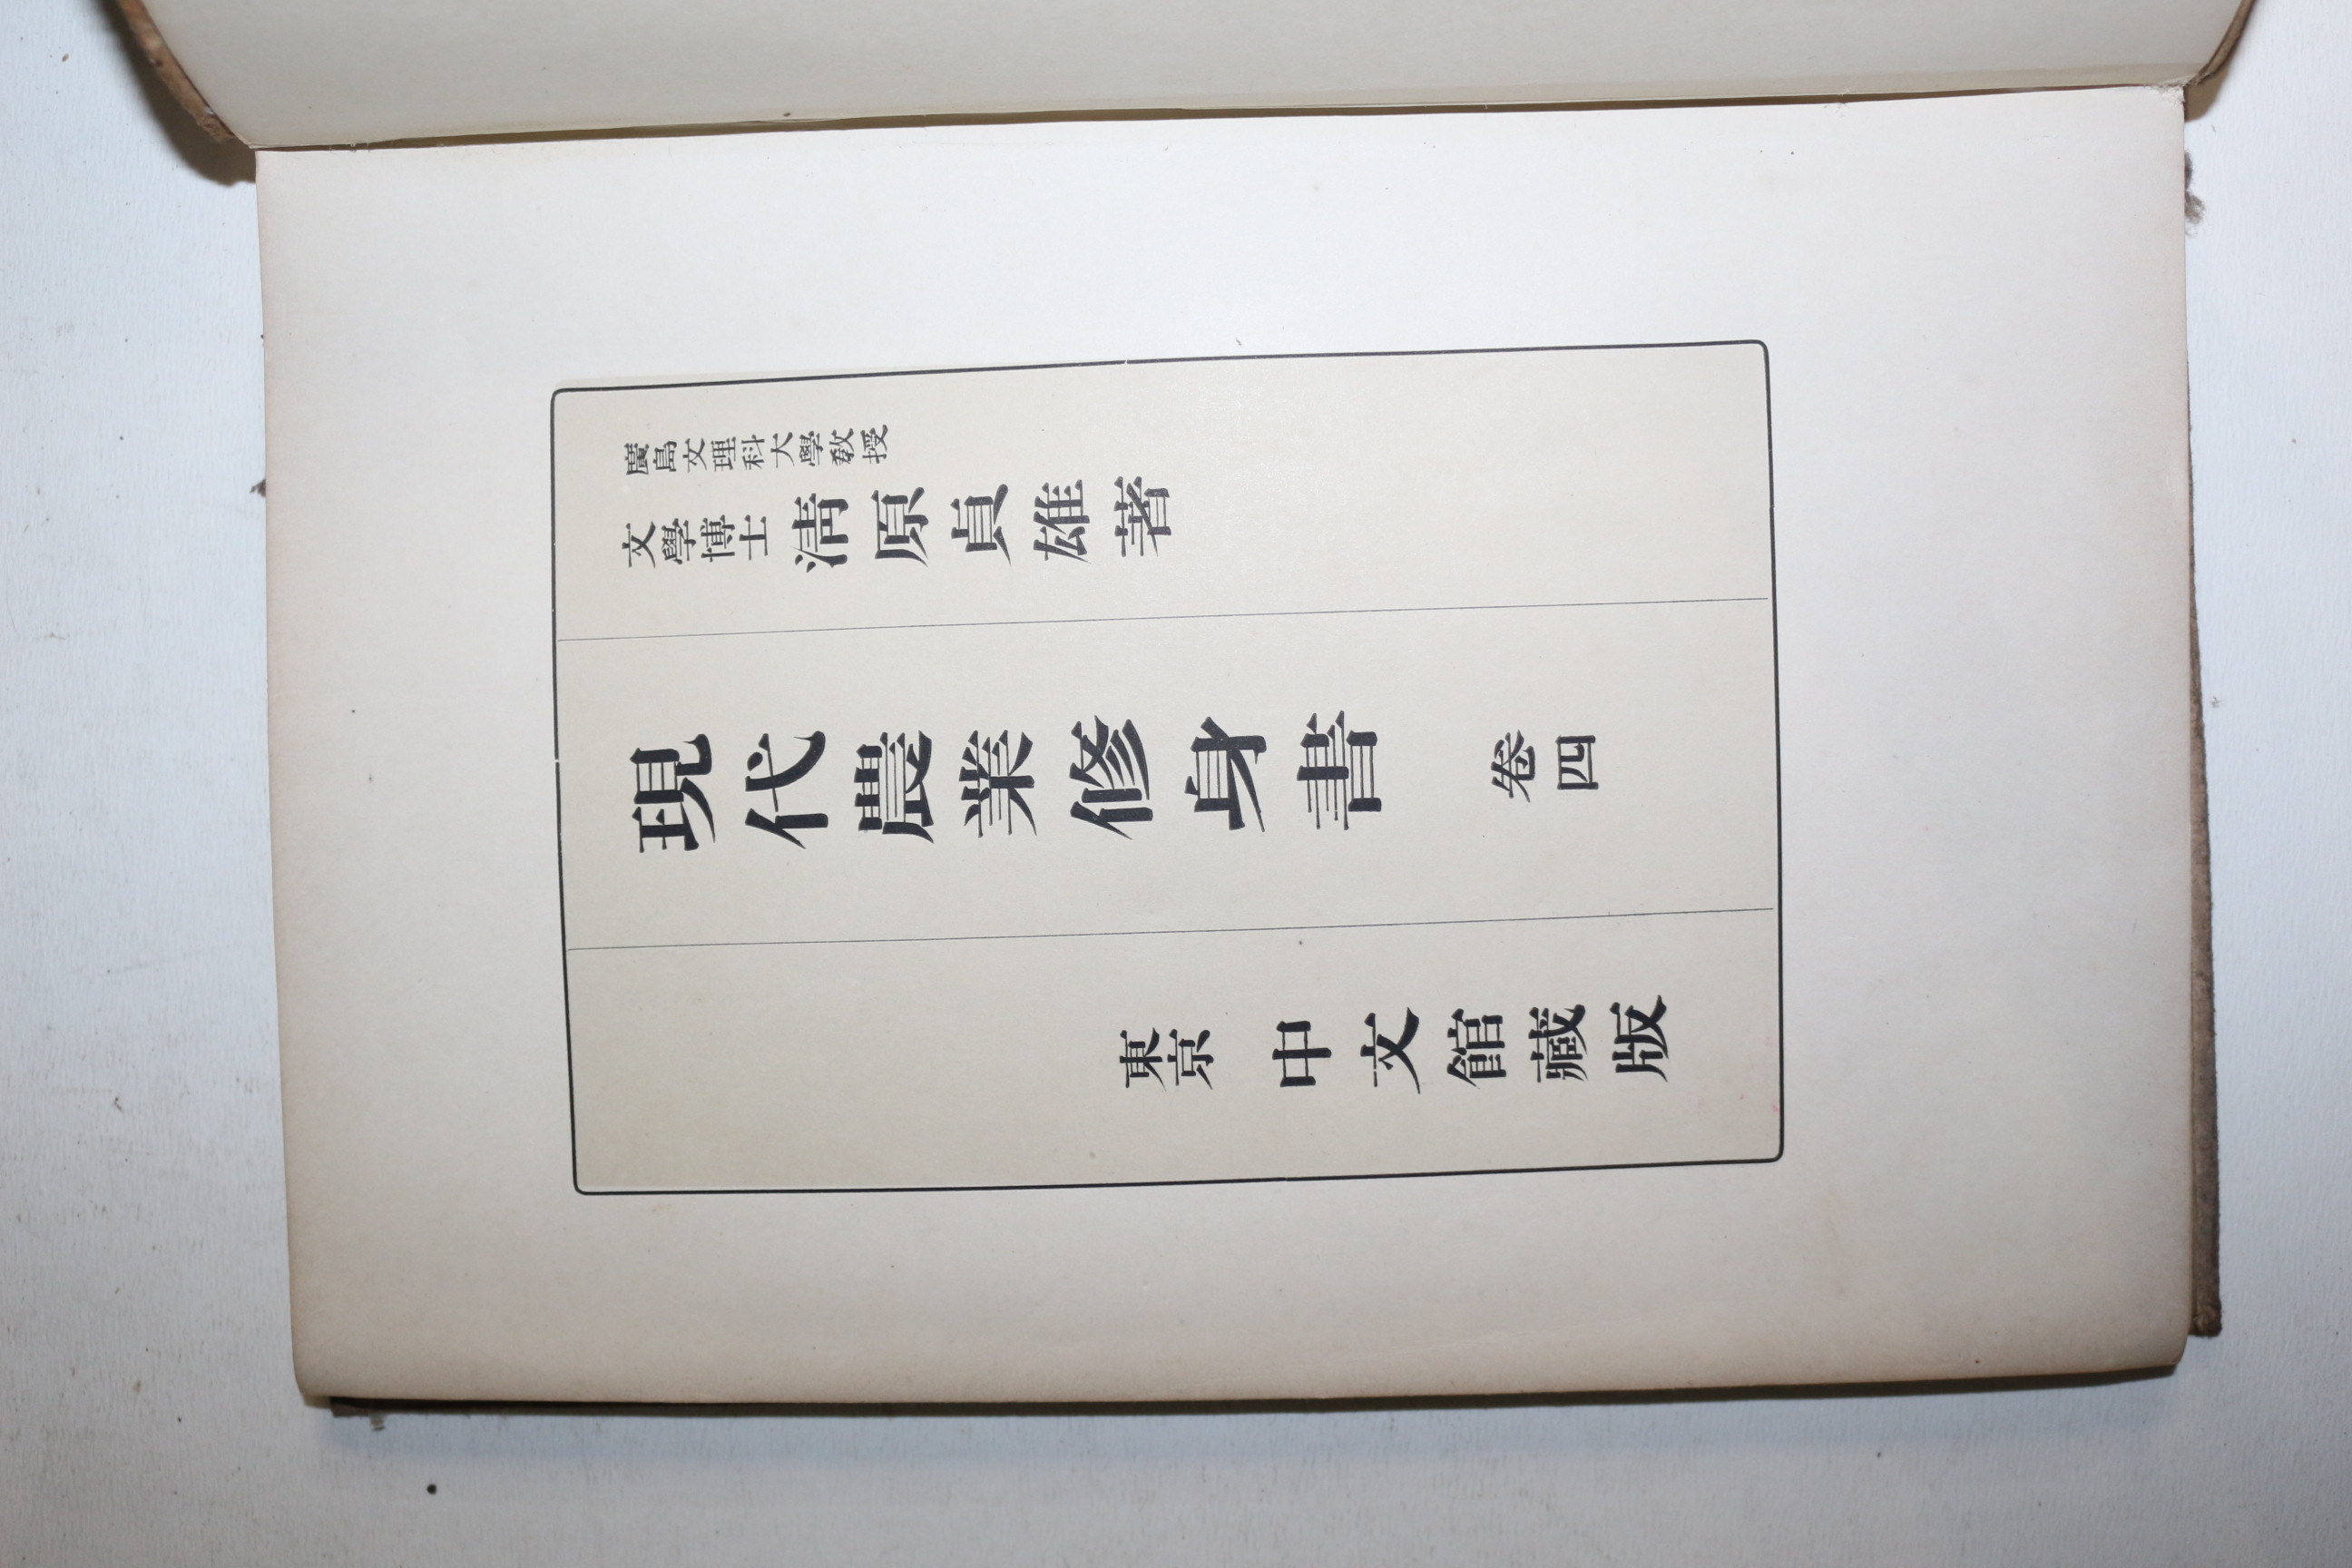 廣島文理科大學敎授
文學博士 淸原貞雄著
現代農業修身書 卷四
東京 中文館藏版